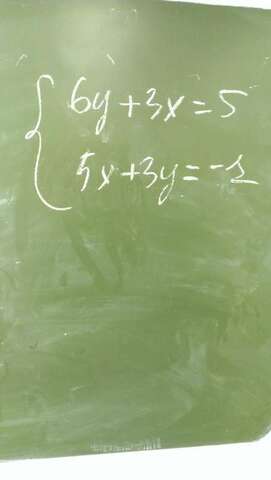 6y+3x=5
5x+3y=-1